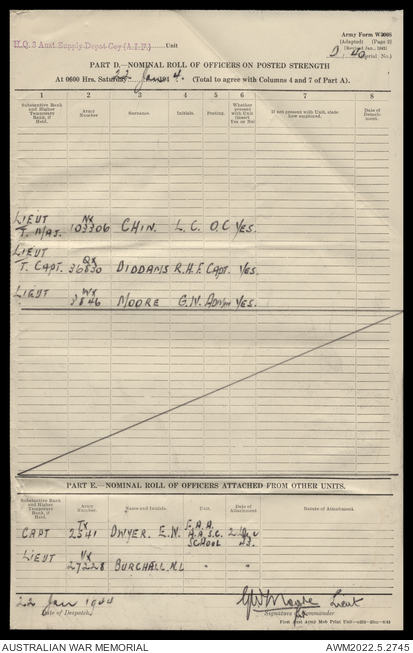 Army Form W3008
(Adapted) (Page 2)
[Revised Jan., 1943]
H.Q. 3 Aust. Supply Depot Coy (A.I.F.) Unit
(Serial No.)
PART D.—NOMINAL ROLL OF OFFICERS ON POSTED STRENGTH
At 0600 Hrs. Saturday 22 Jan 1944. (Total to agree with Columns 4 and 7 of Part A).
1 2 3 4 5 6 7 8
Substantive Rank and Higher Temporary Rank, if Held. Army Number Surname. Initials. Posting. Whether present with Unit (insert Yes or No) If not present with Unit, state how employed. Date of Detachment.
LIEUT NX
T. MAJ. 103306 CHIN. L. C. O C YES.
LIEUT QX
T. CAPT. 36830 DIDDAMS R.H.F. CAPT. YES.
LIEUT WX
MOORE G.W. ADMN YES.
PART E.—NOMINAL ROLL OF OFFICERS ATTACHED FROM OTHER UNITS.
Substantive Rank and Higher Temporary Rank, if Held. Army Number. Name and Initials. Unit. Date of Attachment Nature of Attachment.
CAPT TX 2541 DWYER. E.N. A.A.S.C. SCHOOL
LIEUT VX 27228 BURCHALL N.L " "
22 Jan 1944
Date of Despatch.
GW Moore Lieut
Signature of Commander
AUSTRALIAN WAR MEMORIAL
AWM2022.5.2745